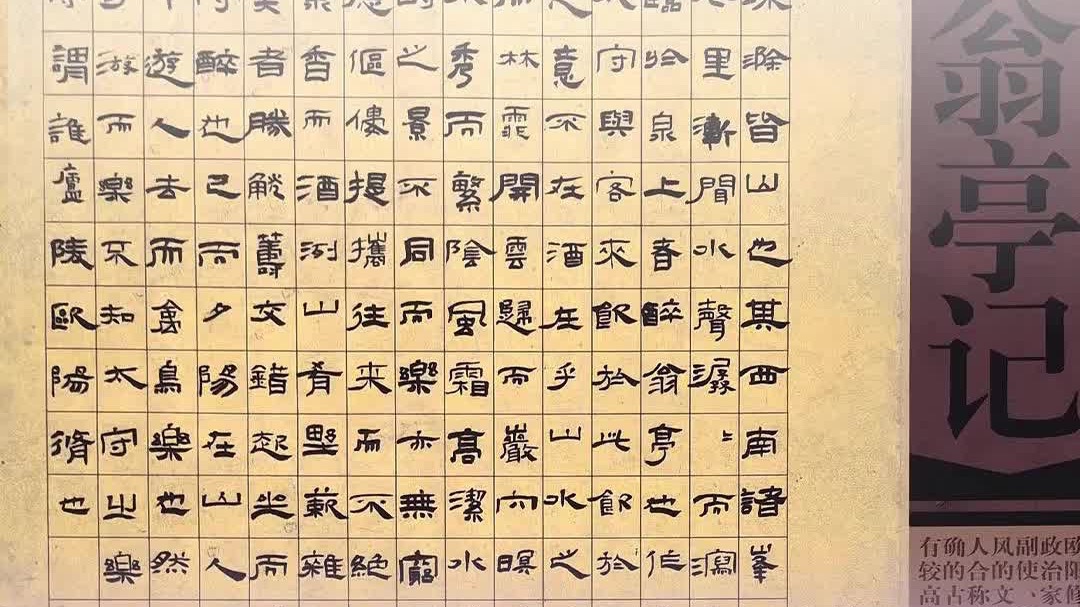 滁皆山也其西南諸峯
里漸聞水聲潺〻而瀉
臨於泉上者醉翁亭也作
守與客來飲於此飲於
之意不在酒在乎山水之
林霏開雲歸而巖穴暝
秀而繁陰風霜高潔水
時之景不同而樂亦無窮
應傴僂提攜往来而不絕
泉香而酒洌山肴野蔌雜
者勝觥籌交錯起坐而
醉也已而夕陽在山人
遊人去而禽鳥樂也然
游而樂不知太守之樂
謂誰廬陵歐陽脩也
翁亭记
欧阳修
政治家
副使、
风的文
人合称
确的古
有较高